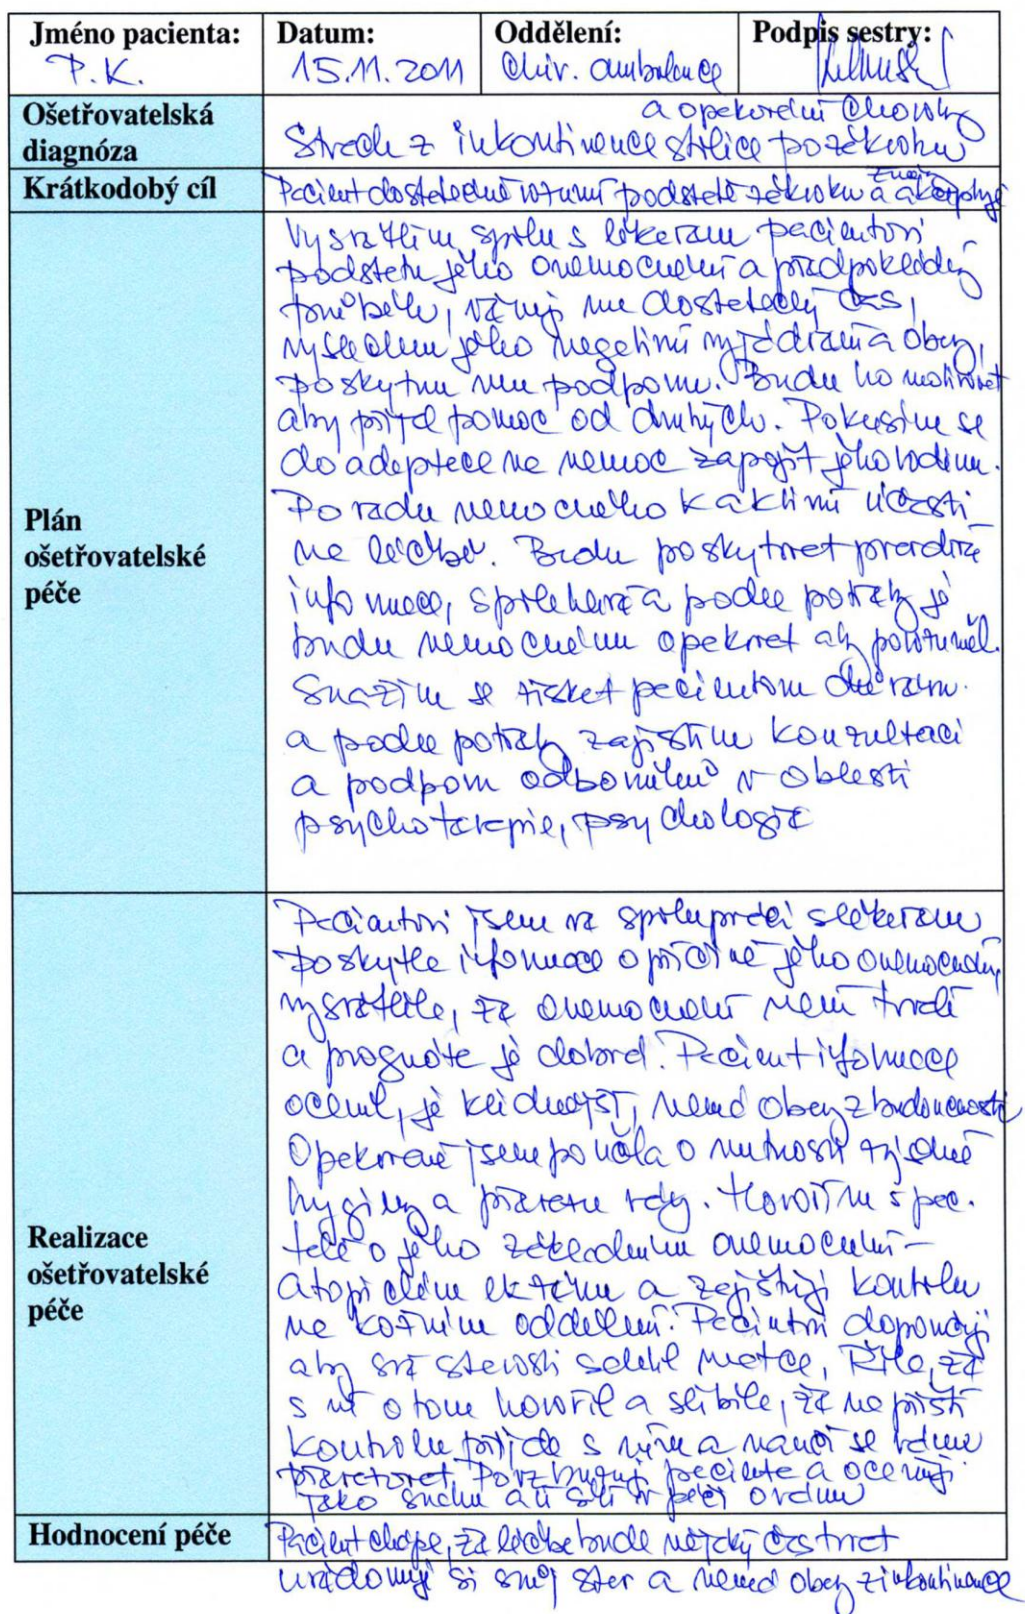 Jméno pacienta: Datum: Oddělení: Podpis sestry:
P.K. 15.11.2011 Chir. ambulance
Ošetřovatelská
diagnóza
a opakování choroby
Strach z inkontinence stolice po zákroku
Krátkodobý cíl
Pacient dostatečně rozumí podstatě zákroku a akceptuje
Plán
ošetřovatelské
péče
Vysvětlím spolu s lékařem pacientovi
podstatu jeho onemocnění a předpokládaný
průběh, věnuji mu dostatečný čas,
vyslechnu jeho negativní vyjádření a obavy,
poskytnu mu podporu. Budu ho motivovat
aby přijal pomoc od druhých. Pokusím se
do adaptace na nemoc zapojit jeho rodinu.
Povedu nemocného k aktivní účasti
na léčbě. Budu poskytovat pravdivé
informace, spolehlivé a podle potřeby je
budu nemocnému opakovat aby porozuměl.
Snažím se získat pacientovu důvěru.
a podle potřeby zajistím konzultaci
a podporu odborníků v oblasti
psychoterapie, psychologie
Realizace
ošetřovatelské
péče
Pacientovi jsem ve spolupráci s lékařem
poskytla informace o příčině jeho onemocnění,
vysvětlila, že onemocnění není trvalé
a prognóza je dobrá. Pacient ifomace
ocenil, je klidnější, nemá obavy z budoucnosti
Opakovaně jsem poučila o nutnosti zvýšené
hygieny a převazu rány. Hovoříme s pac.
také o jeho základním onemocnění –
atopickém ekzému a zajištuji kontrolu
na kožním oddělení. Pacientovi doporučuji
aby své starosti sdělil matce, Řekl, že
s ní o tom hovořil a slíbila, že na příští
kontrolu přijde s ním a naučí se ránu
převazovat. Povzbuzuji pacienta a oceňuji
jako snahu a úsilí v péči o ránu
Hodnocení péče
Pacient chápe, že léčba bude nějaký čas trvat
uvědomuje si svůj stav a nemá obavy z inkontinence